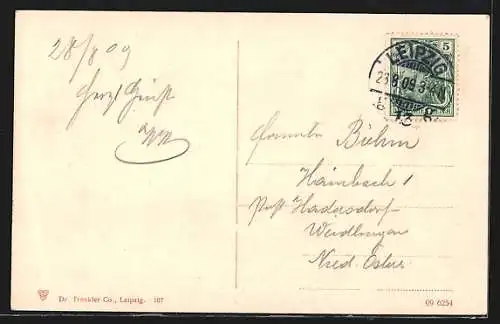 28/8 09
Herzl Gruß
5
LEIPZIG
09
Böhm
Hainbach 1
Post Hadersdorf
Weidlingau
Nied. Österr
Dr. Trenkler Co., Leipzig. 107
09 6254